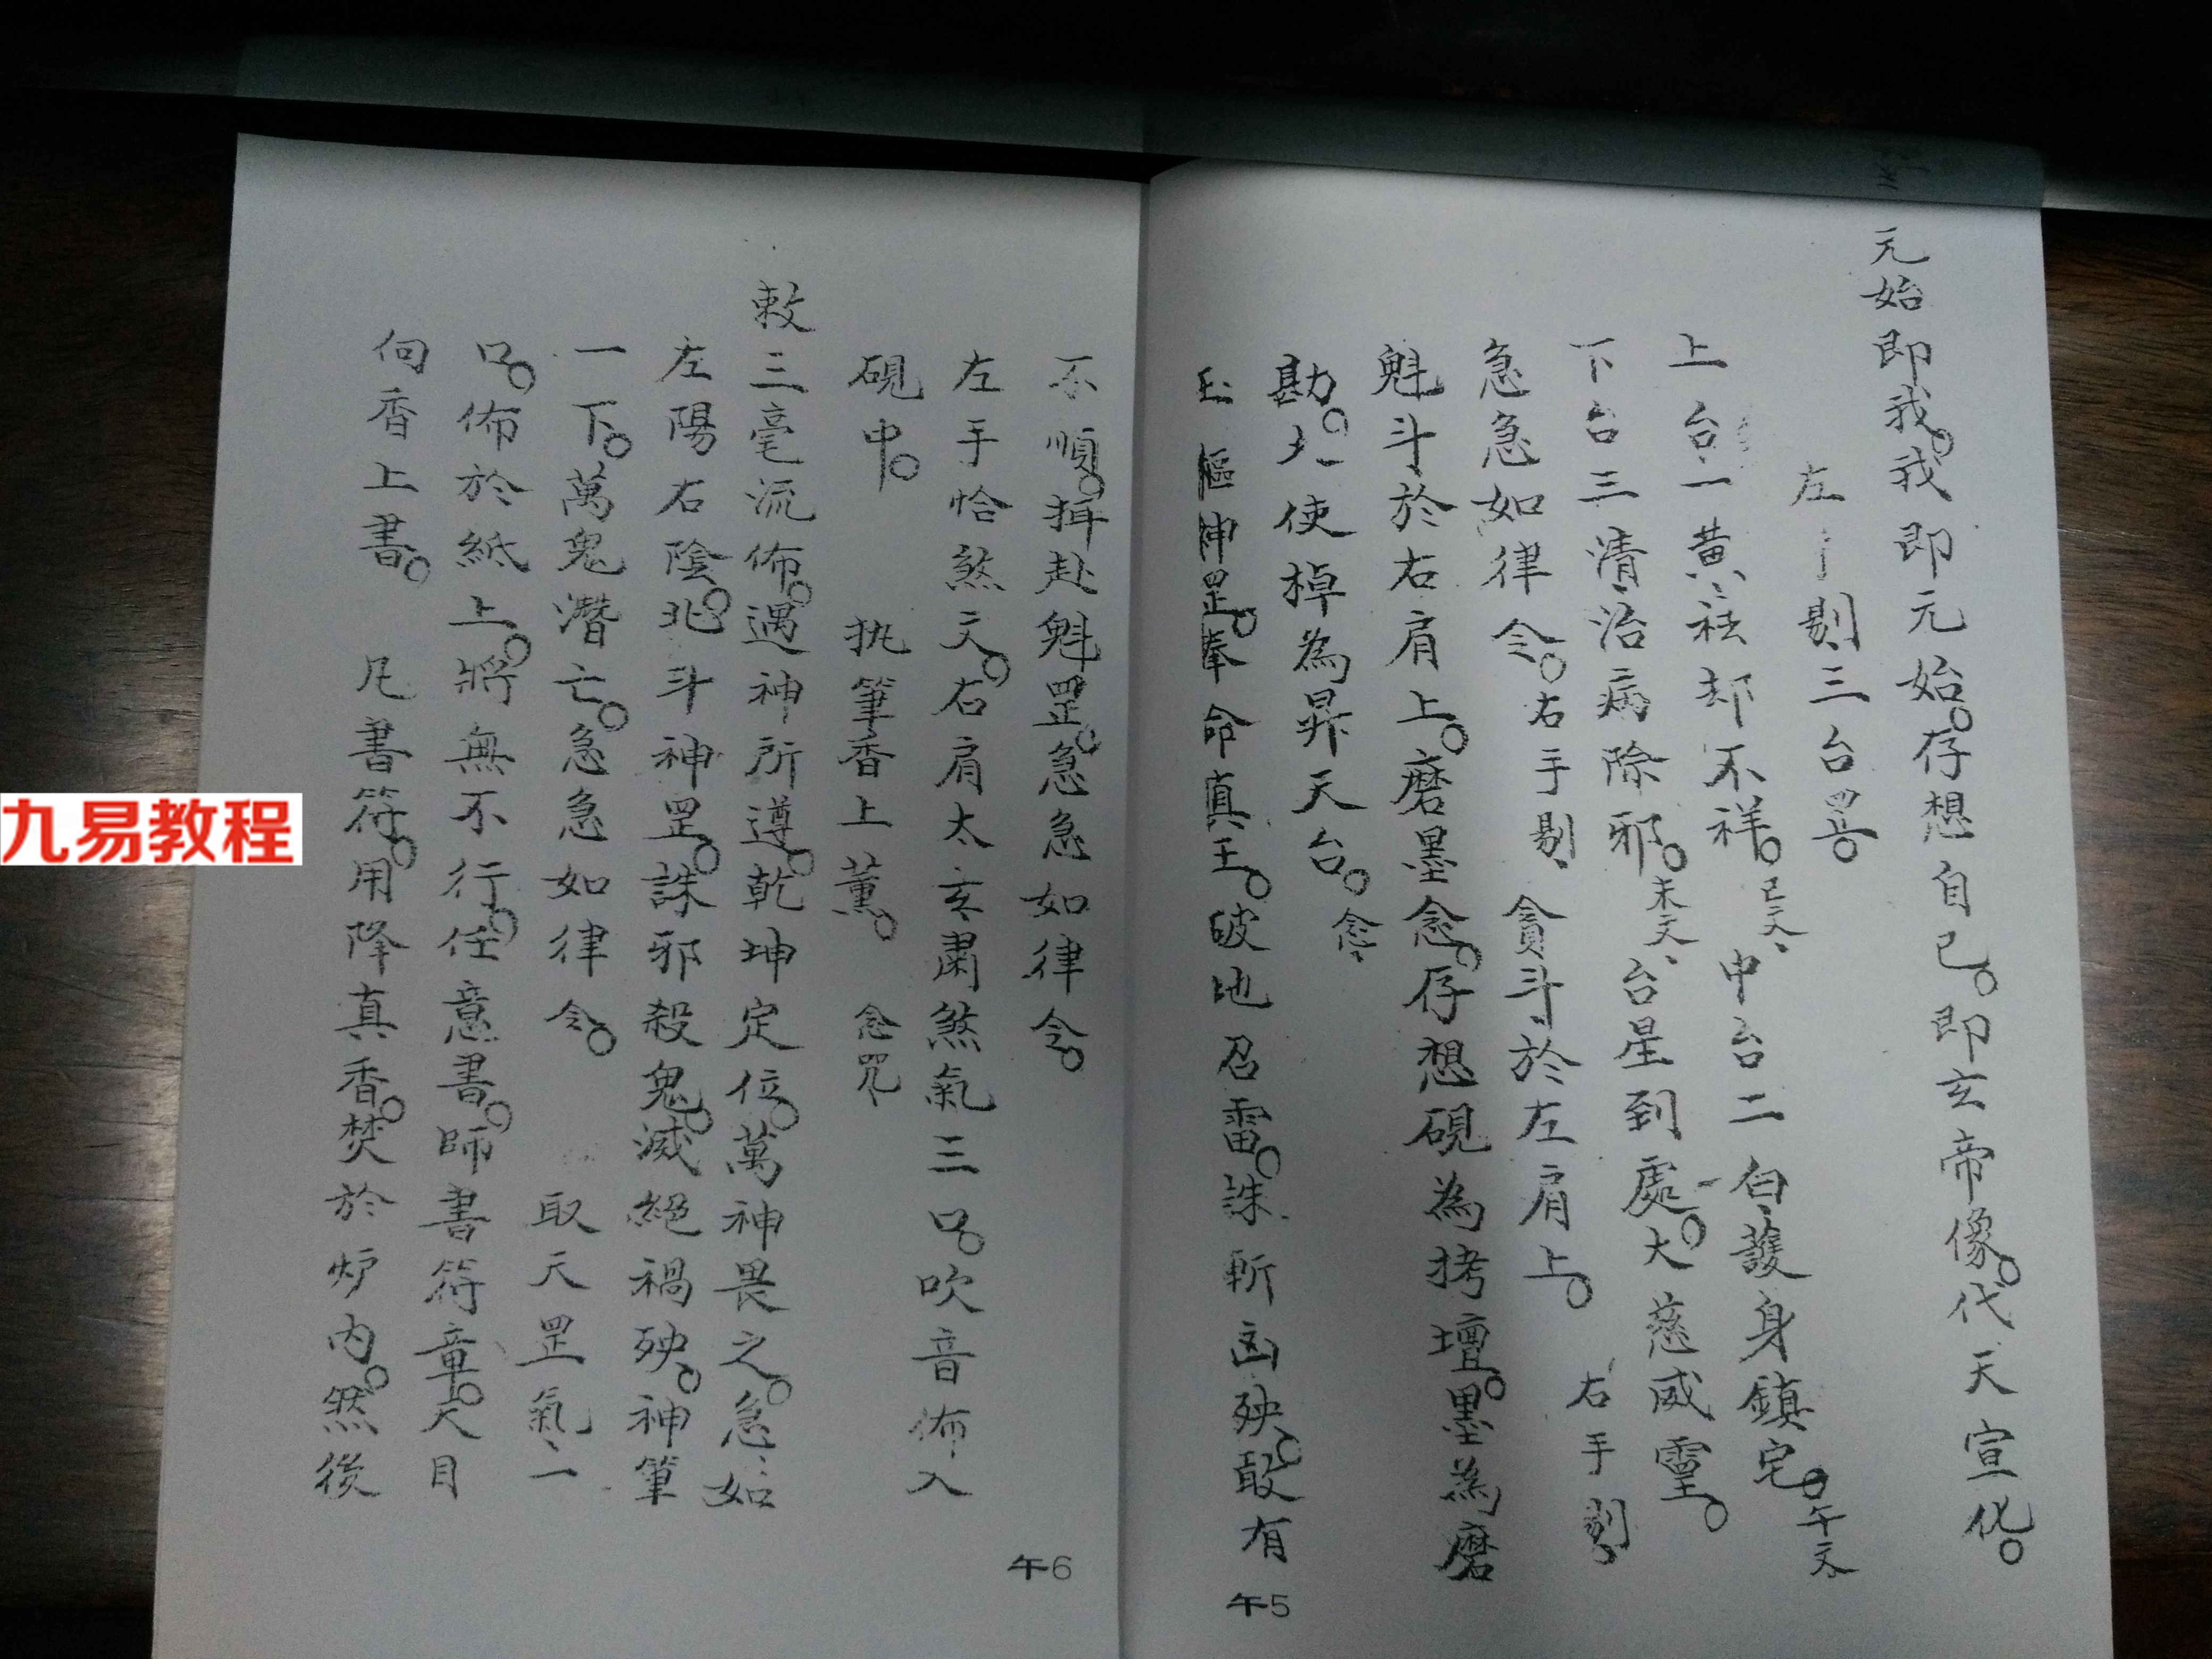 元始即我。我即元始。存想自己。即玄帝像。代天宣化。
左手剔三台罡。
上台一黄祛却不祥。巳文、中台二白護身鎮宅。午文
下台三清治病除邪。未文、台星到處。大慈威靈。
急急如律令。右手剔、貪斗於左肩上。右手剔、
魁斗於右肩上。磨墨念。存想硯為拷壇。墨為磨
勘。使棹為昇天台。念、
樞神罡。奉命真王。破地召雷。誅斬凶殃。敢有
午5
不順。押赴魁罡。急急如律令。
左手恰煞文。右肩太玄肅煞氣三口。吹音佈入
硯中。执筆香上薰。念咒
敕三毫流佈。遇神所遵。乾坤定位。萬神畏之。急、如
左陽右陰。北斗神罡。誅邪殺鬼。滅絕禍殃。神筆
一下。萬鬼潛亡。急急如律令。取天罡氣、一
口。佈於紙上。將無不行。任意書。師書符章。大目
向香上書。凡書符。用降真香。焚於炉内。然後
午6
九易教程